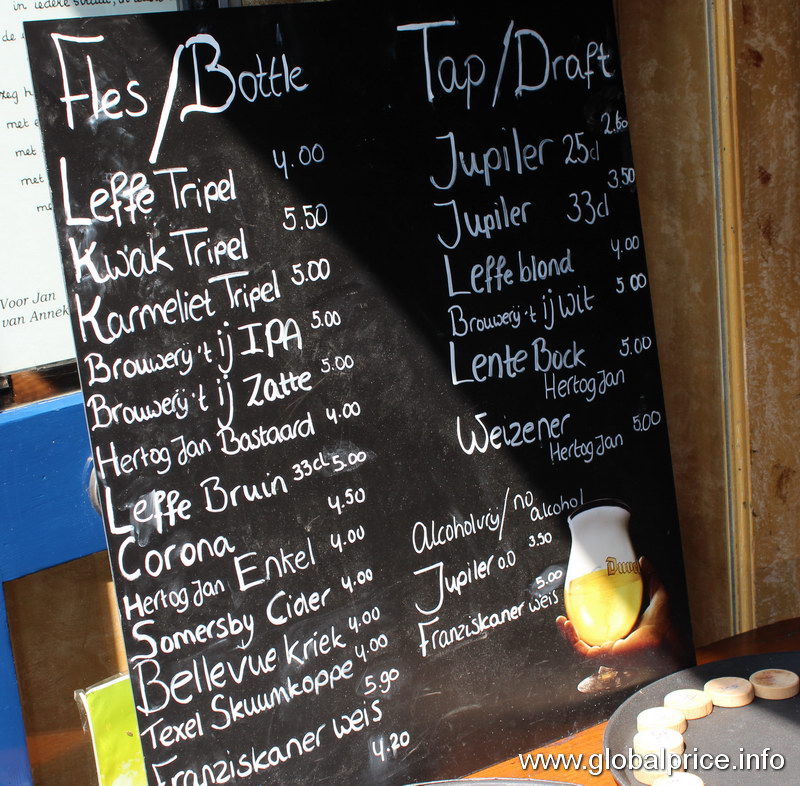 in iedere
de
zeg h
met e
met
met
Voor Jan
van Annek
Fles/Bottle
Leffe Tripel 4.00
Kwak Tripel 5.50
Karmeliet Tripel 5.00
Brouwerij 't ij IPA 5.00
Brouwerij 't ij Zatte 5.00
Hertog Jan Bastaard 4.00
Leffe Bruin 33cl 5.00
Corona 4.50
Hertog Jan Enkel 4.00
Somersby Cider 4.00
Bellevue Kriek 4.00
Texel Skuumkoppe 4.00
Franziskaner weis 5.90
4.20
Tap/Draft
Jupiler 25cl 2.60
Jupiler 33cl 3.50
Leffe blond 4.00
Brouwerij 't ij Wit 5 00
Lente Bock 5.00
Hertog Jan
Weizener 5.00
Hertog Jan
Alcoholvrij/no alcohol
Jupiler 0.0 3.50
Franziskaner weis 5.00
Duvel
www.globalprice.info